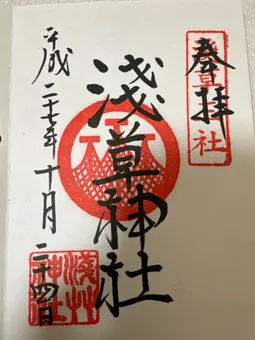 奉拝
浅草神社
平成二十七年十月二十四日
浅草神社